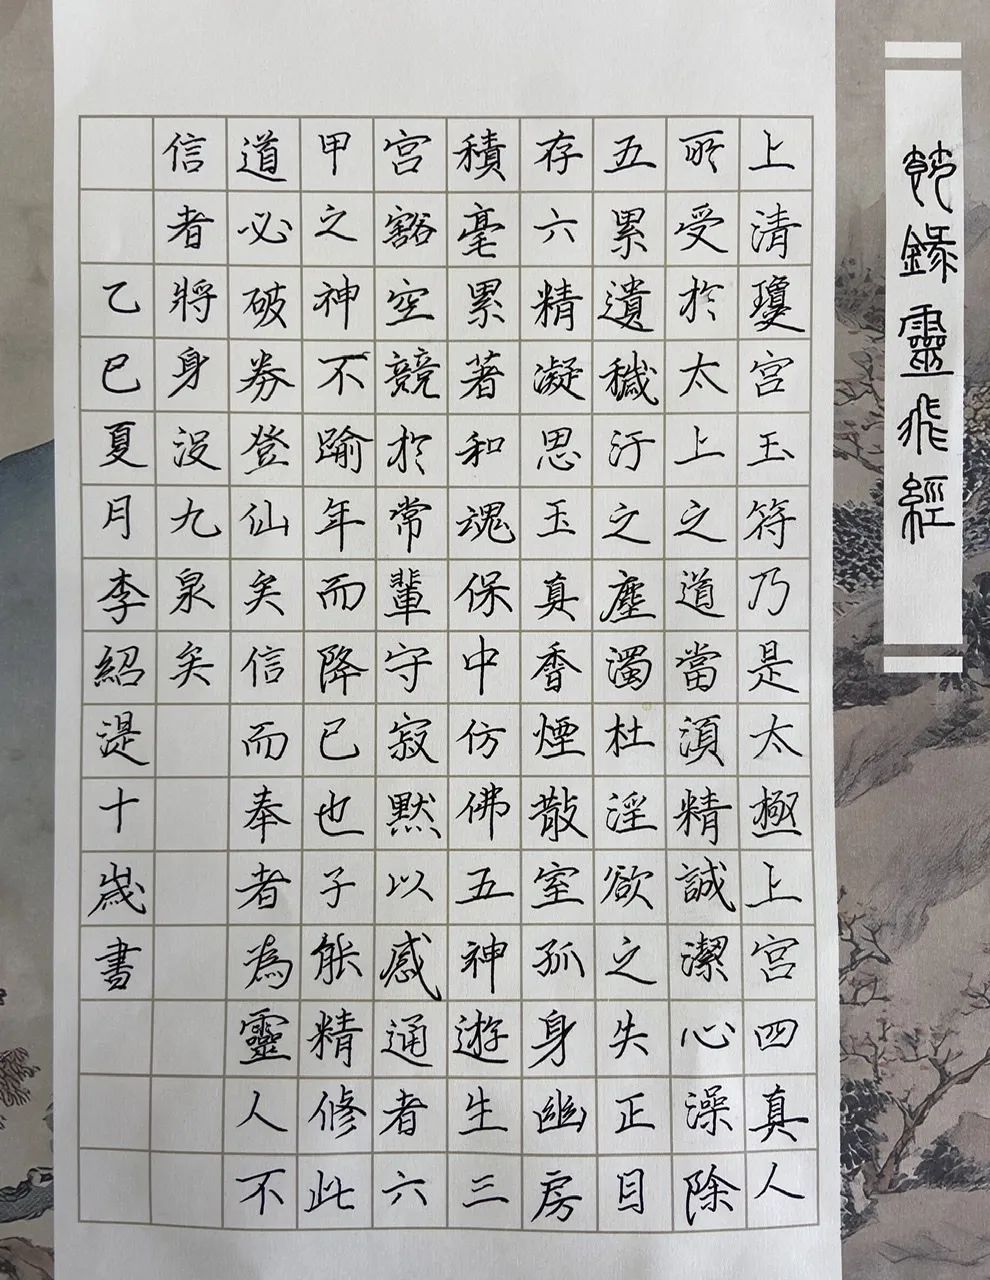 節錄靈飛經
上清瓊宮玉符乃是太極上宮四真人
所受於太上之道當須精誠潔心澡除
五累遺穢汙之塵濁杜淫欲之失正目
存六精凝思玉真香煙散室孤身幽房
積毫累著和魂保中仿佛五神遊生三
宮豁空競於常輩守寂默以感通者六
甲之神不踰年而降已也子能精修此
道必破券登仙矣信而奉者為靈人不
信者將身沒九泉矣
乙巳夏月李紹湜十歲書